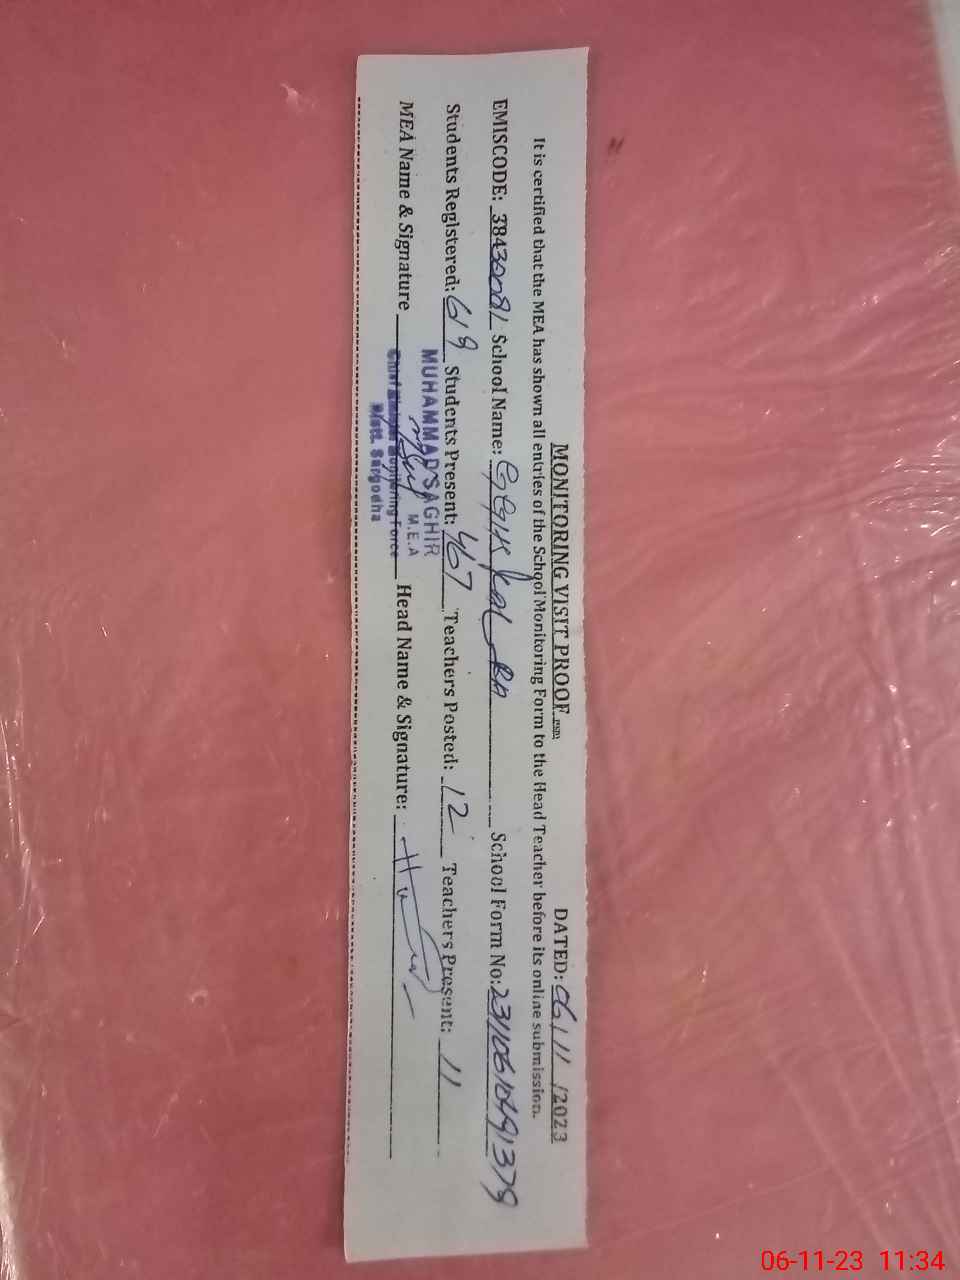 MONITORING VISIT PROOF DATED: 06/11/2023
It is certified that the MEA has shown all entries of the School Monitoring Form to the Head Teacher before its online submission.
EMISCODE: 38430081 School Name: School Form No:
Students Registered: 619 Students Present: 467 Teachers Posted: 12 Teachers Present: 11
MUHAMMAD SAGHIR
M.E.A
MEA Name & Signature Head Name & Signature:
Chief Minister Monitoring Force
Distt. Sargodha
06-11-23 11:34